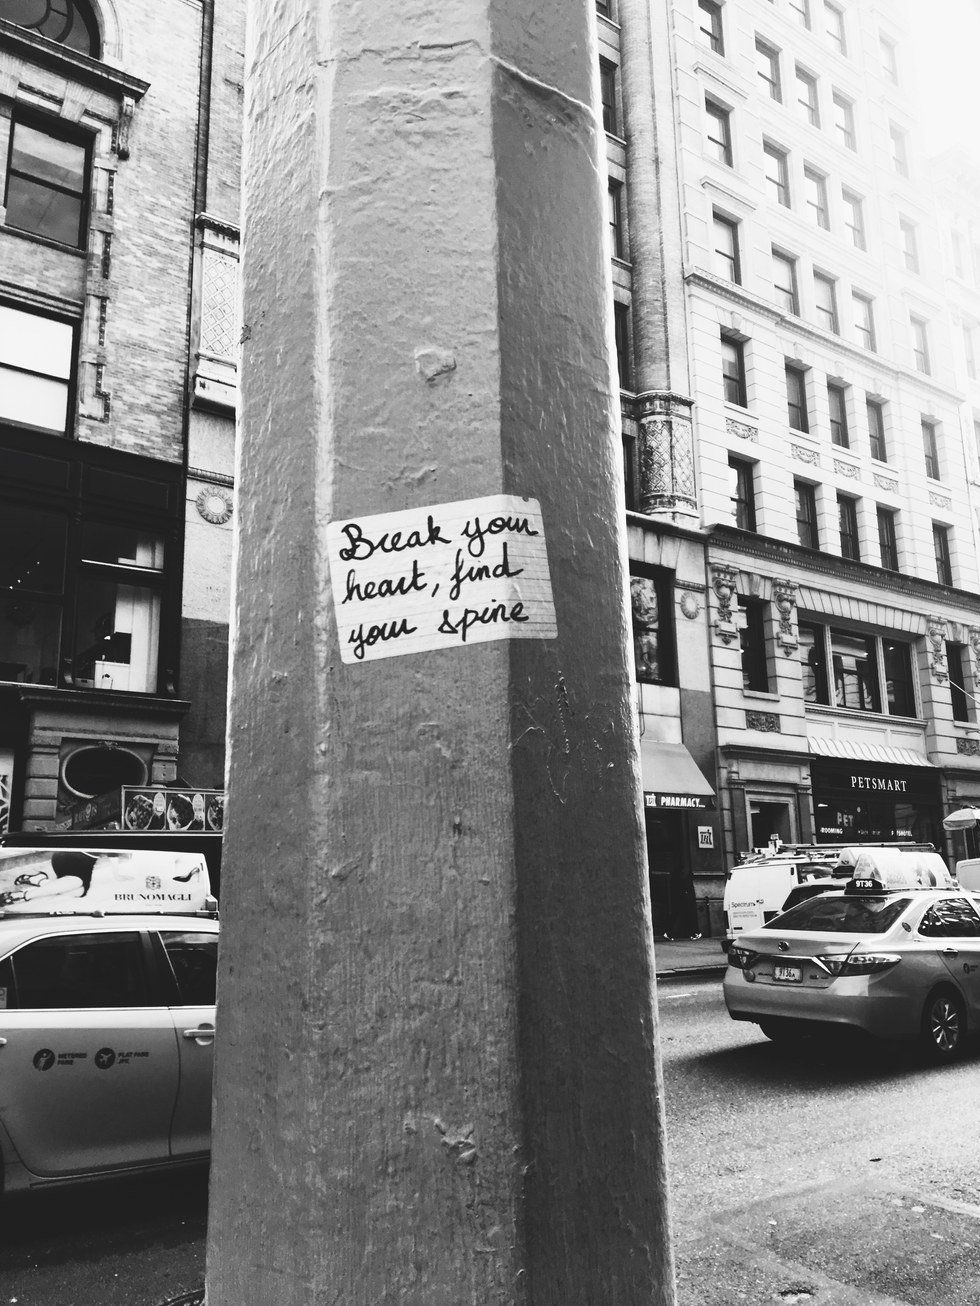 Break your
heart, find
your spine
PETSMART
PET
PHARMACY
BRUNOMAGLI
9T36
Spectrum
METERED
FARE
FLAT FARE
JFK